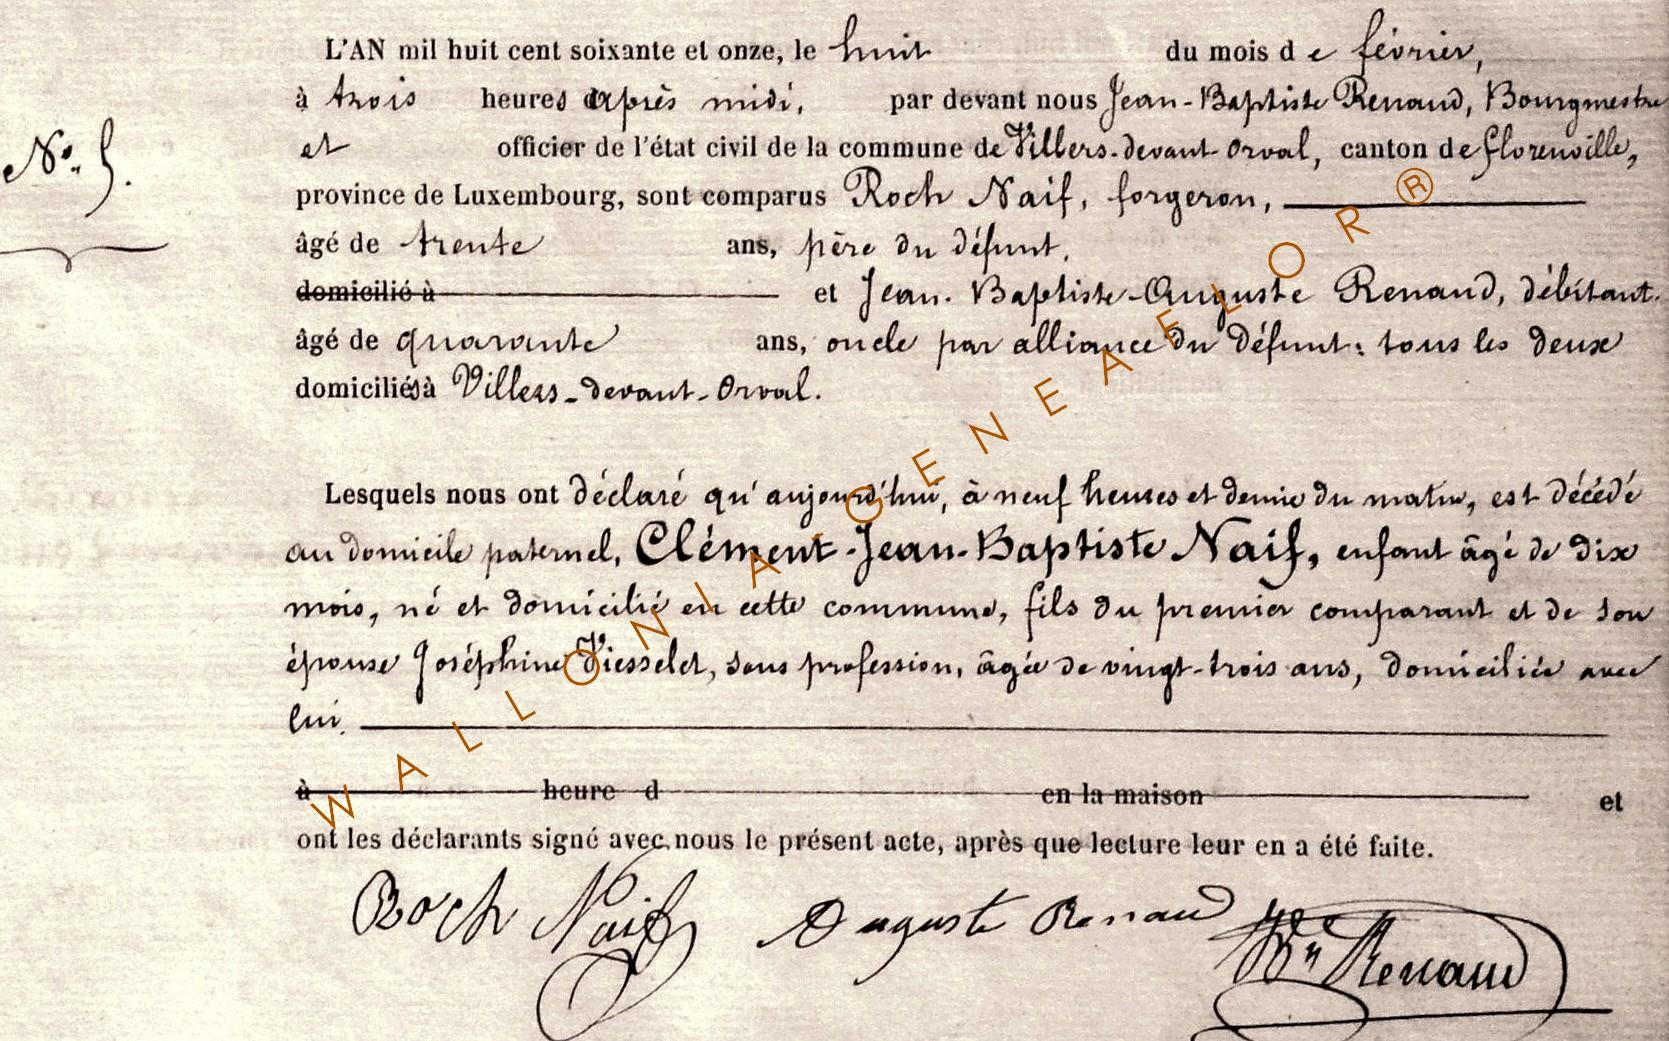 L'AN mil huit cent soixante et onze, le huit du mois de février,
à trois heures après midi, par devant nous Jean-Baptiste Renaud, Bourgmestre
et officier de l'état civil de la commune de Villers-devant-Orval, canton de Florenville,
N° 5.
province de Luxembourg, sont comparus Roch Naif, forgeron,
âgé de trente ans, père du défunt,
domicilié à et Jean-Baptiste-Auguste Renaud, débitant.
âgé de quarante ans, oncle par alliance du défunt: tous les deux
domiciliés à Villers-devant-Orval.
Lesquels nous ont déclaré qu'aujourd'hui, à neuf heures et demie du matin, est décédé
au domicile paternel, Clément-Jean-Baptiste Naif, enfant âgé de dix
mois, né et domicilié en cette commune, fils du premier comparant et de son
épouse Joséphine Viesselet, sans profession, âgée de vingt-trois ans, domiciliée avec
lui.
à heure d en la maison et
ont les déclarants signé avec nous le présent acte, après que lecture leur en a été faite.
Roch Naif Auguste Renaud Renaud
WALLONIA GENEAFLOR®